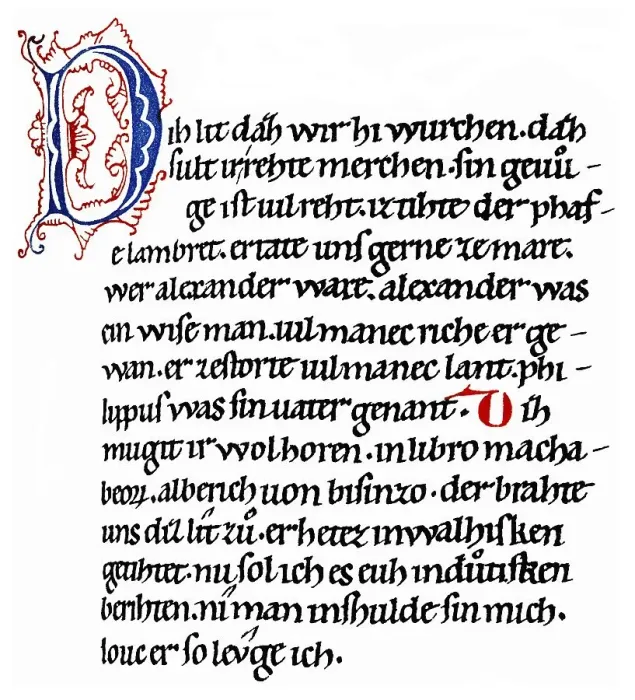 Dih liet dáh wir hi wurchen. dáh
ſult ir rehte merchen. ſin gevuͦ-
ge iſt uil reht. iz tihte der phaf-
e lambret. er tate unſ gerne ze mare.
wer alexander ware. alexander was
ein wiſe man. uil manec riche er ge-
wan. er zeſtorte uil manec lant. phi-
lippuſ was ſin uater genant. Dih
mugit ir wol horen. in libro macha-
beoꝝ. alberich uon biſinzo. der brahte
uns diz lît zuͦ. er hetez in walhiſken
getihtet. nu ſol ich es euh in duͦtiſken
berihten. nîman inſhulde ſin mich.
louc er ſo levge ich.